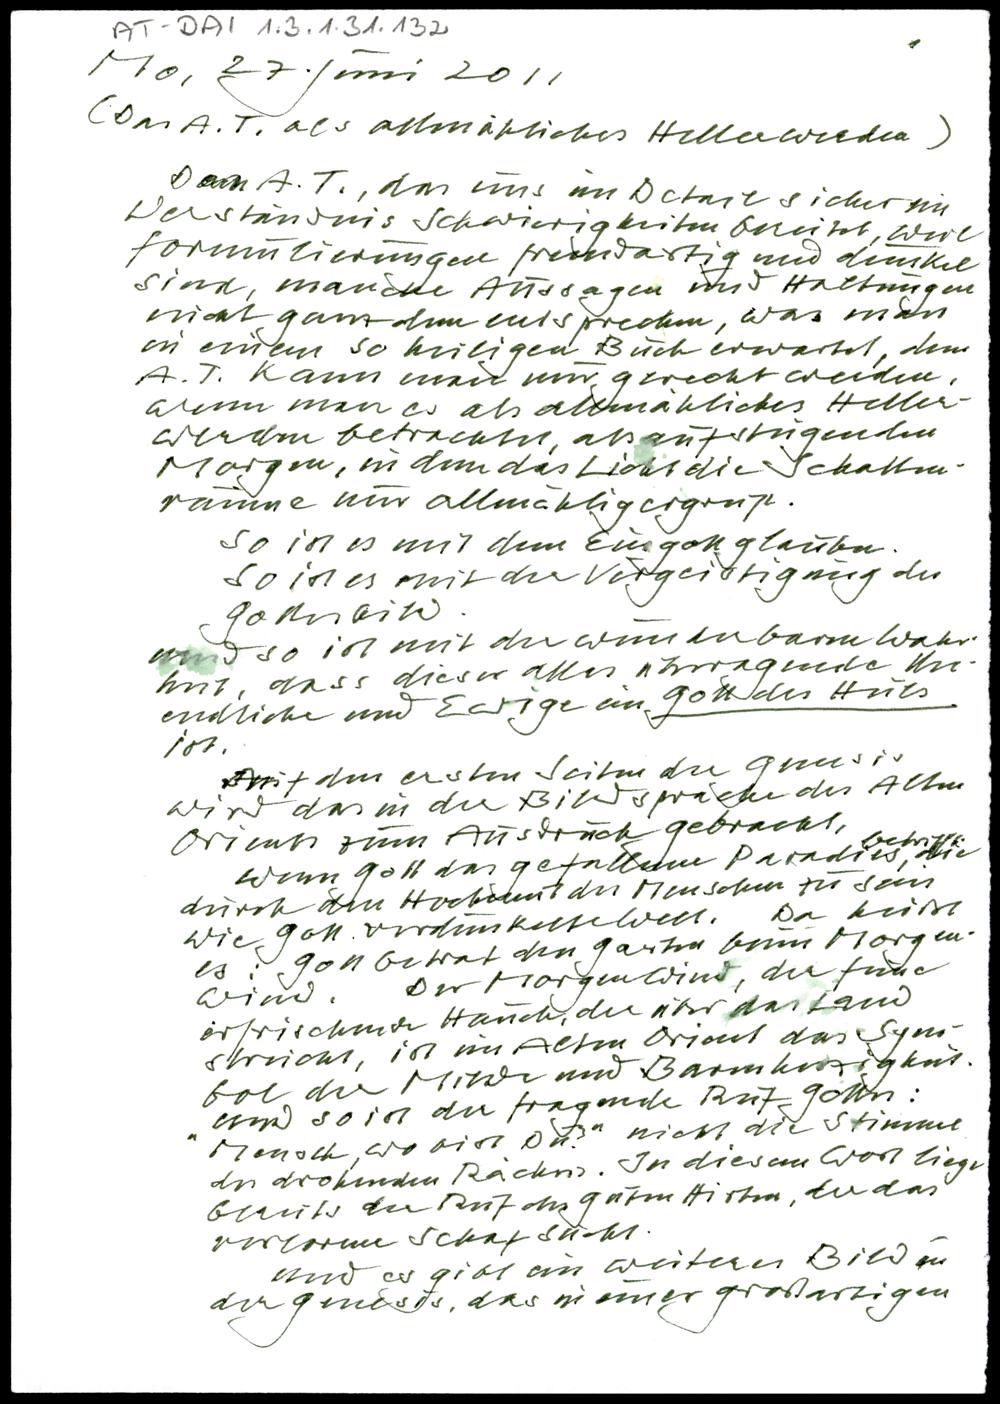 AT-DAI 1.3.1.31.132
1
Mo, 27. Juni 2011
(Das A.T. als allmähliches Hellerwerden)
Das A.T., das uns im Detail sicher im
Verständnis Schwierigkeiten bereitet, weil
Formulierungen fremdartig und dunkel
sind, manche Aussagen und Haltungen
nicht ganz dem entsprechen, was man
in einem so heiligen Buch erwartet, dem
A.T. kann man nur gerecht werden,
wenn man es als allmähliches Heller-
werden betrachtet, als aufsteigenden
Morgen, in dem das Licht die Schatten-
räume nur allmählig ergreift.
So ist es mit dem Eingottglauben.
So ist es mit der Vergeistigung des
Gottesbild.
und so ist mit der wunderbaren Wahr-
heit, dass dieser alles überragende Un-
endliche und Ewige ein Gott des Heils
ist.
Auf den ersten Seiten der Genesis
wird das in der Bildsprache des Alten
Orients zum Ausdruck gebracht,
wenn Gott das gefallene Paradies betritt, die
durch den Hochmut des Menschen zu sein
wie Gott verdunkelte Welt. Da heisst
es: Gott betrat den Garten beim Morgen-
wind. Der Morgenwind, der feine
erfrischende Hauch, der über das Land
streicht, ist im Alten Orient das Sym-
bol der Milde und Barmherzigkeit.
und so ist der fragende Ruf Gottes:
"Mensch, wo bist Du?" nicht die Stimme
des drohenden Rächers. In diesem Wort liegt
bereits der Ruf des guten Hirten, der das
verlorene Schaf sucht.
und es gibt ein weiteres Bild in
der Genesis, das in einer großartigen